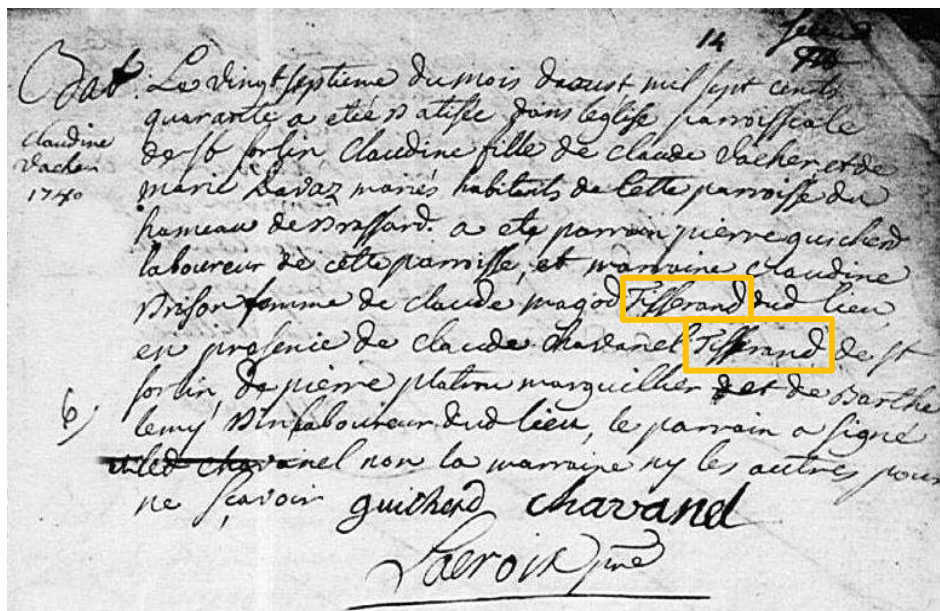 14
Bat.
claudine
vacher
1740
Le vingt septieme du mois daoust mil sept cents
quarante a etée batisée dans leglise parroissiale
de st sorlin, claudine fille de claude vacher, et de
marie Davaz mariés habitants de cette parroisse du
hameau de Brassard. a ete parrain pierre guicherd
laboureur de cette parroisse, et marraine claudine
Brison femme de claude magod Tisserand dud lieu
en presence de claude chavanel Tisserand de st
sorlin, de pierre marguillier et de Barthe
lemy laboureur dud lieu, le parrain a signé
chavanel non la marraine ny les autres pour
ne sçavoir guicherd chavanel
6)
Lacroix